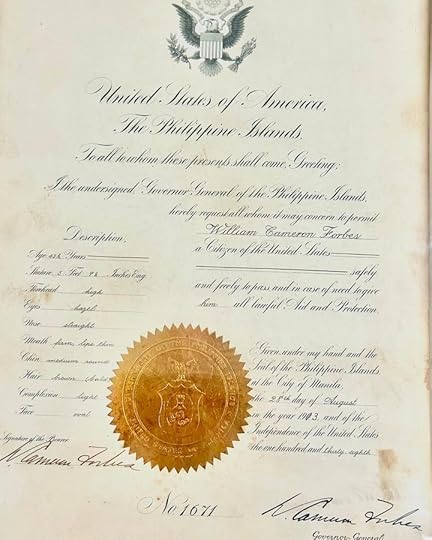 United States of America,
The Philippine Islands.
To all to whom these presents shall come, Greeting:
I the undersigned Governor General of the Philippine Islands,
hereby request all whom it may concern to permit
William Cameron Forbes
a Citizen of the United States
safely
and freely to pass and in case of need to give
him all lawful Aid and Protection.
Description,
Age Years
Stature 5 Feet Inches Eng
Forehead high
Eyes hazel
Nose straight
Mouth firm, lips thin
Chin medium round
Hair brown
Complexion light
Face oval
Signature of the Bearer
W. Cameron Forbes
Given under my hand and the
Seal of the Philippine Islands,
at the City of Manila,
the 25th day of August
in the year 1913, and of the
Independence of the United States
the one hundred and thirty eighth
UNITED STATES OF AMERICA
No 1671
W. Cameron Forbes
Governor-General